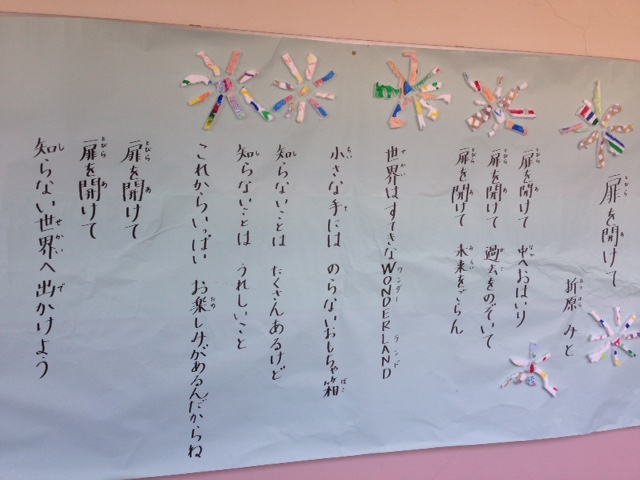 扉を開けて
折原 みと
扉を開けて 中へおはいり
扉を開けて 過去をのぞいて
扉を開けて 未来をごらん
世界はすてきなWONDERLAND
小さな手には のらないおもちゃ箱
知らないことは たくさんあるけど
知らないことは うれしいこと
これからいっぱい お楽しみがあるんだからね
扉を開けて
扉を開けて
知らない世界へ 出かけよう